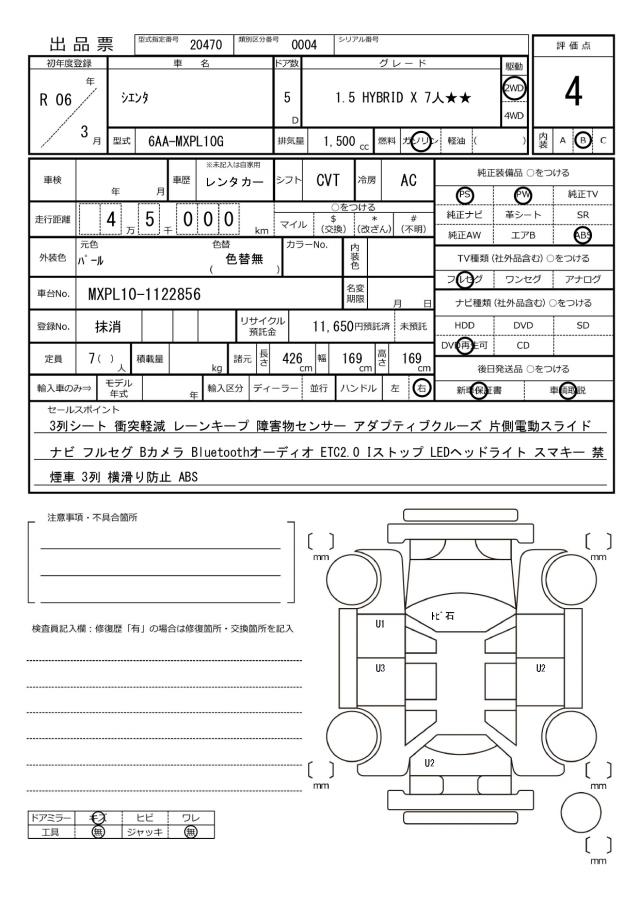 出品票 型式指定番号 20470 類別区分番号 0004 シリアル番号
評価点
4
内装 A B C
初年度登録 車名 ドア数 グレード 駆動
R 06 年 3 月 シエンタ 5 D 1.5 HYBRID X 7人★★ 2WD 4WD
型式 6AA-MXPL10G 排気量 1,500 cc 燃料 ガソリン 軽油 ( )
車検 年 月 車歴 ※未記入は自家用 レンタカー シフト CVT 冷房 AC
走行距離 4 万 5 千 0 0 0 km
○をつける
マイル $(交換) *(改ざん) #(不明)
外装色 元色 パール 色替 ( 色替無 ) カラーNo. 内装色
車台No. MXPL10-1122856 名変期限 月 日
登録No. 抹消 リサイクル預託金 11,650円預託済 未預託
定員 7( )人 積載量 kg 諸元 長さ 426 cm 幅 169 cm 高さ 169 cm
輸入車のみ⇒ モデル年式 年 輸入区分 ディーラー 並行 ハンドル 左 右
純正装備品 ○をつける
PS PW 純正TV
純正ナビ 革シート SR
純正AW エアB ABS
TV種類(社外品含む)○をつける
フルセグ ワンセグ アナログ
ナビ種類(社外品含む)○をつける
HDD DVD SD
DVD再生可 CD
後日発送品 ○をつける
新車保証書 車輌取説
セールスポイント
3列シート 衝突軽減 レーンキープ 障害物センサー アダプティブクルーズ 片側電動スライド
ナビ フルセグ Bカメラ Bluetoothオーディオ ETC2.0 Iストップ LEDヘッドライト スマキー 禁
煙車 3列 横滑り防止 ABS
注意事項・不具合箇所
検査員記入欄：修復歴「有」の場合は修復箇所・交換箇所を記入
〔 〕mm 〔 〕mm
トビ石
U1
U3 U2
U2
〔 〕mm 〔 〕mm
〔 〕mm
ドアミラー キズ ヒビ ワレ
工具 無 ジャッキ 無